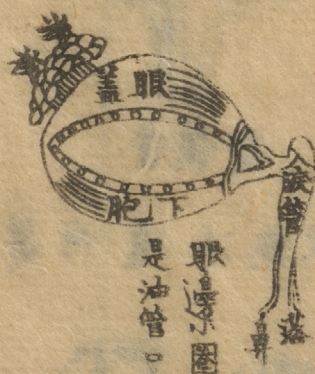 眼蓋
下胞
淚管
落
鼻
眼邊小圈
是油管。